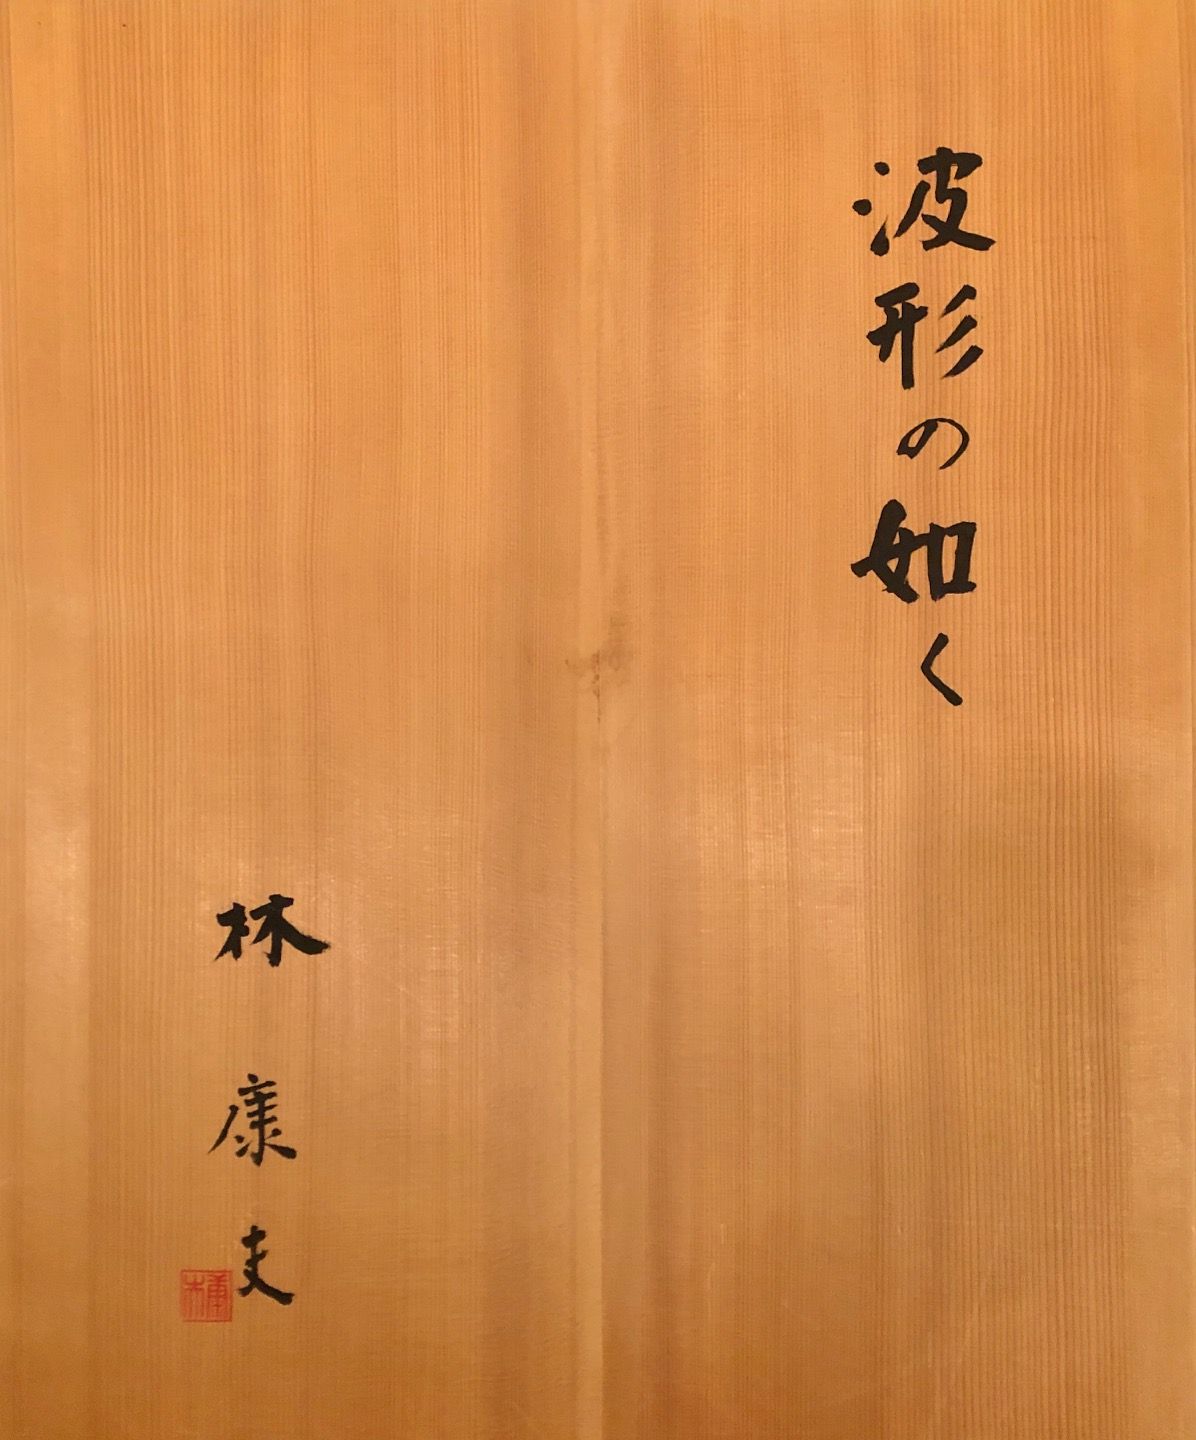 波形の如く
林康夫